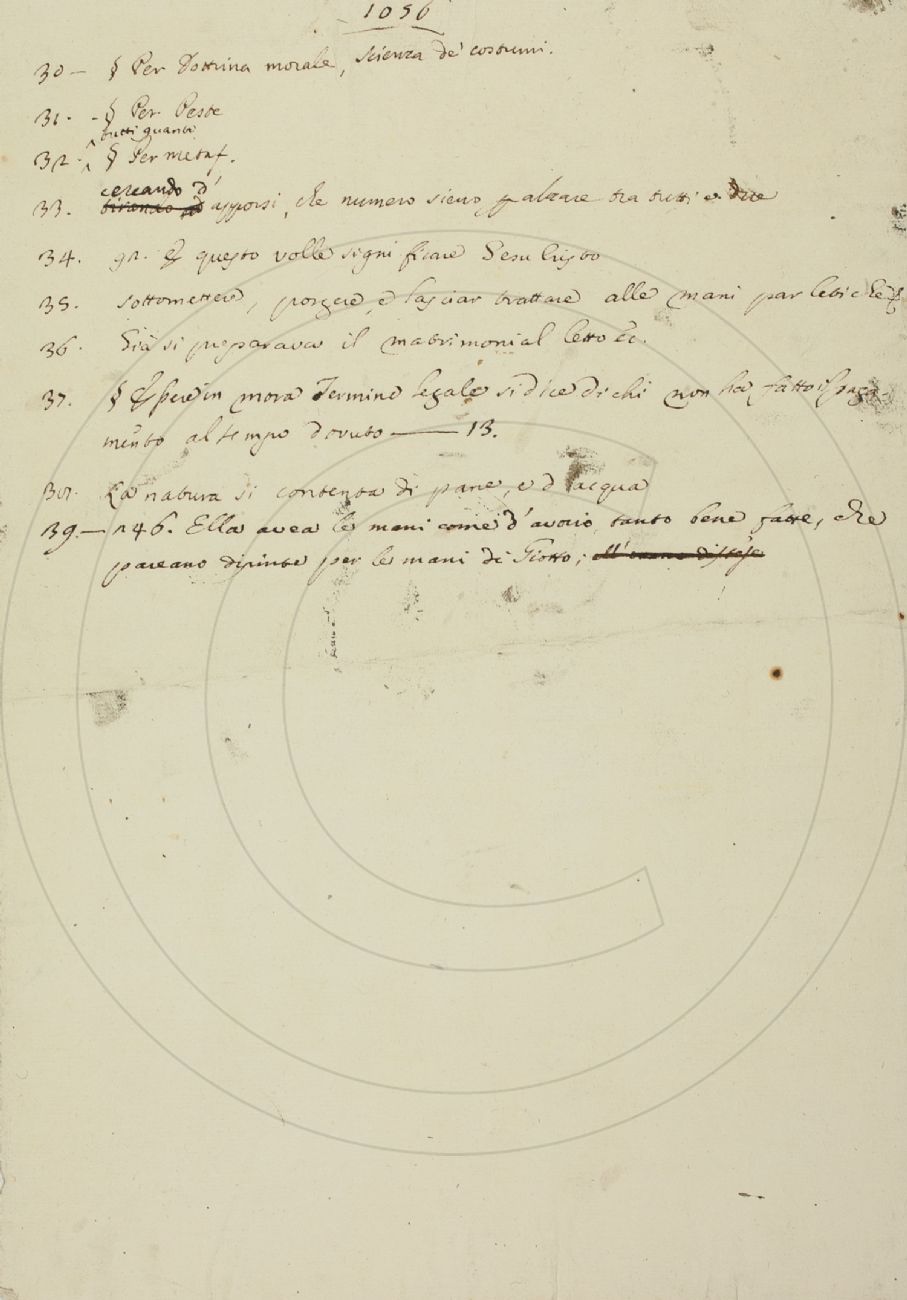 1056
30 — § Per Dottrina morale, scienza de' costumi.
31. - § Per Peste
tutti quanti
32. § Per metaf.
cercando d'
33. apporsi, che numero sieno p alzare tra tutti e due
34. 92. E questo volle significare Gesu Cristo
35. sottomettere, porgere, e lasciar trattare alle mani parletiche
36. Già si preparava il matrimonial letto Ec.
37. § Essere in mora Termine legale si dice di chi non ha fatto il paga-
mento al tempo dovuto —— 13.
La natura si contenta di pane, e d'acqua
39. — 146. Ella avea le mani come d'avorio tanto bene fatte, che
pareano dipinte per le mani di Giotto;